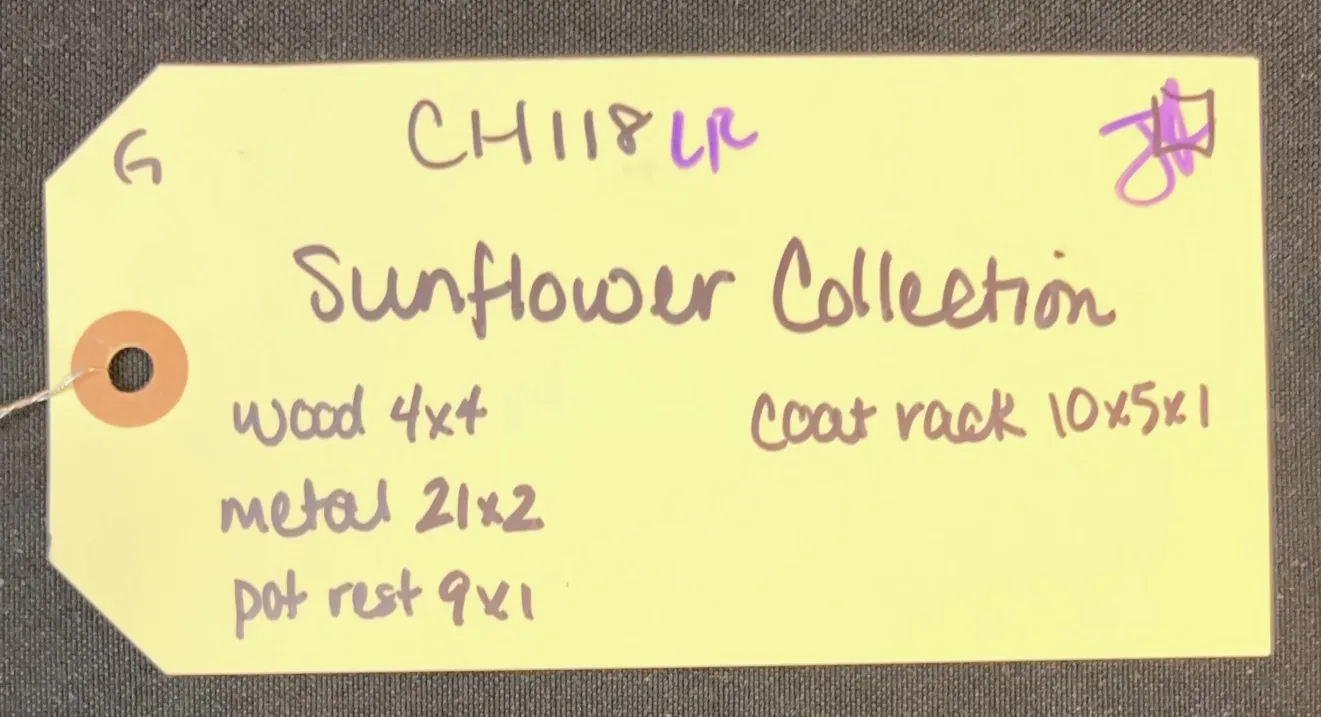 G CH118 LR
Sunflower Collection
wood 4x4 coat rack 10x5x1
metal 21x2
pot rest 9x1